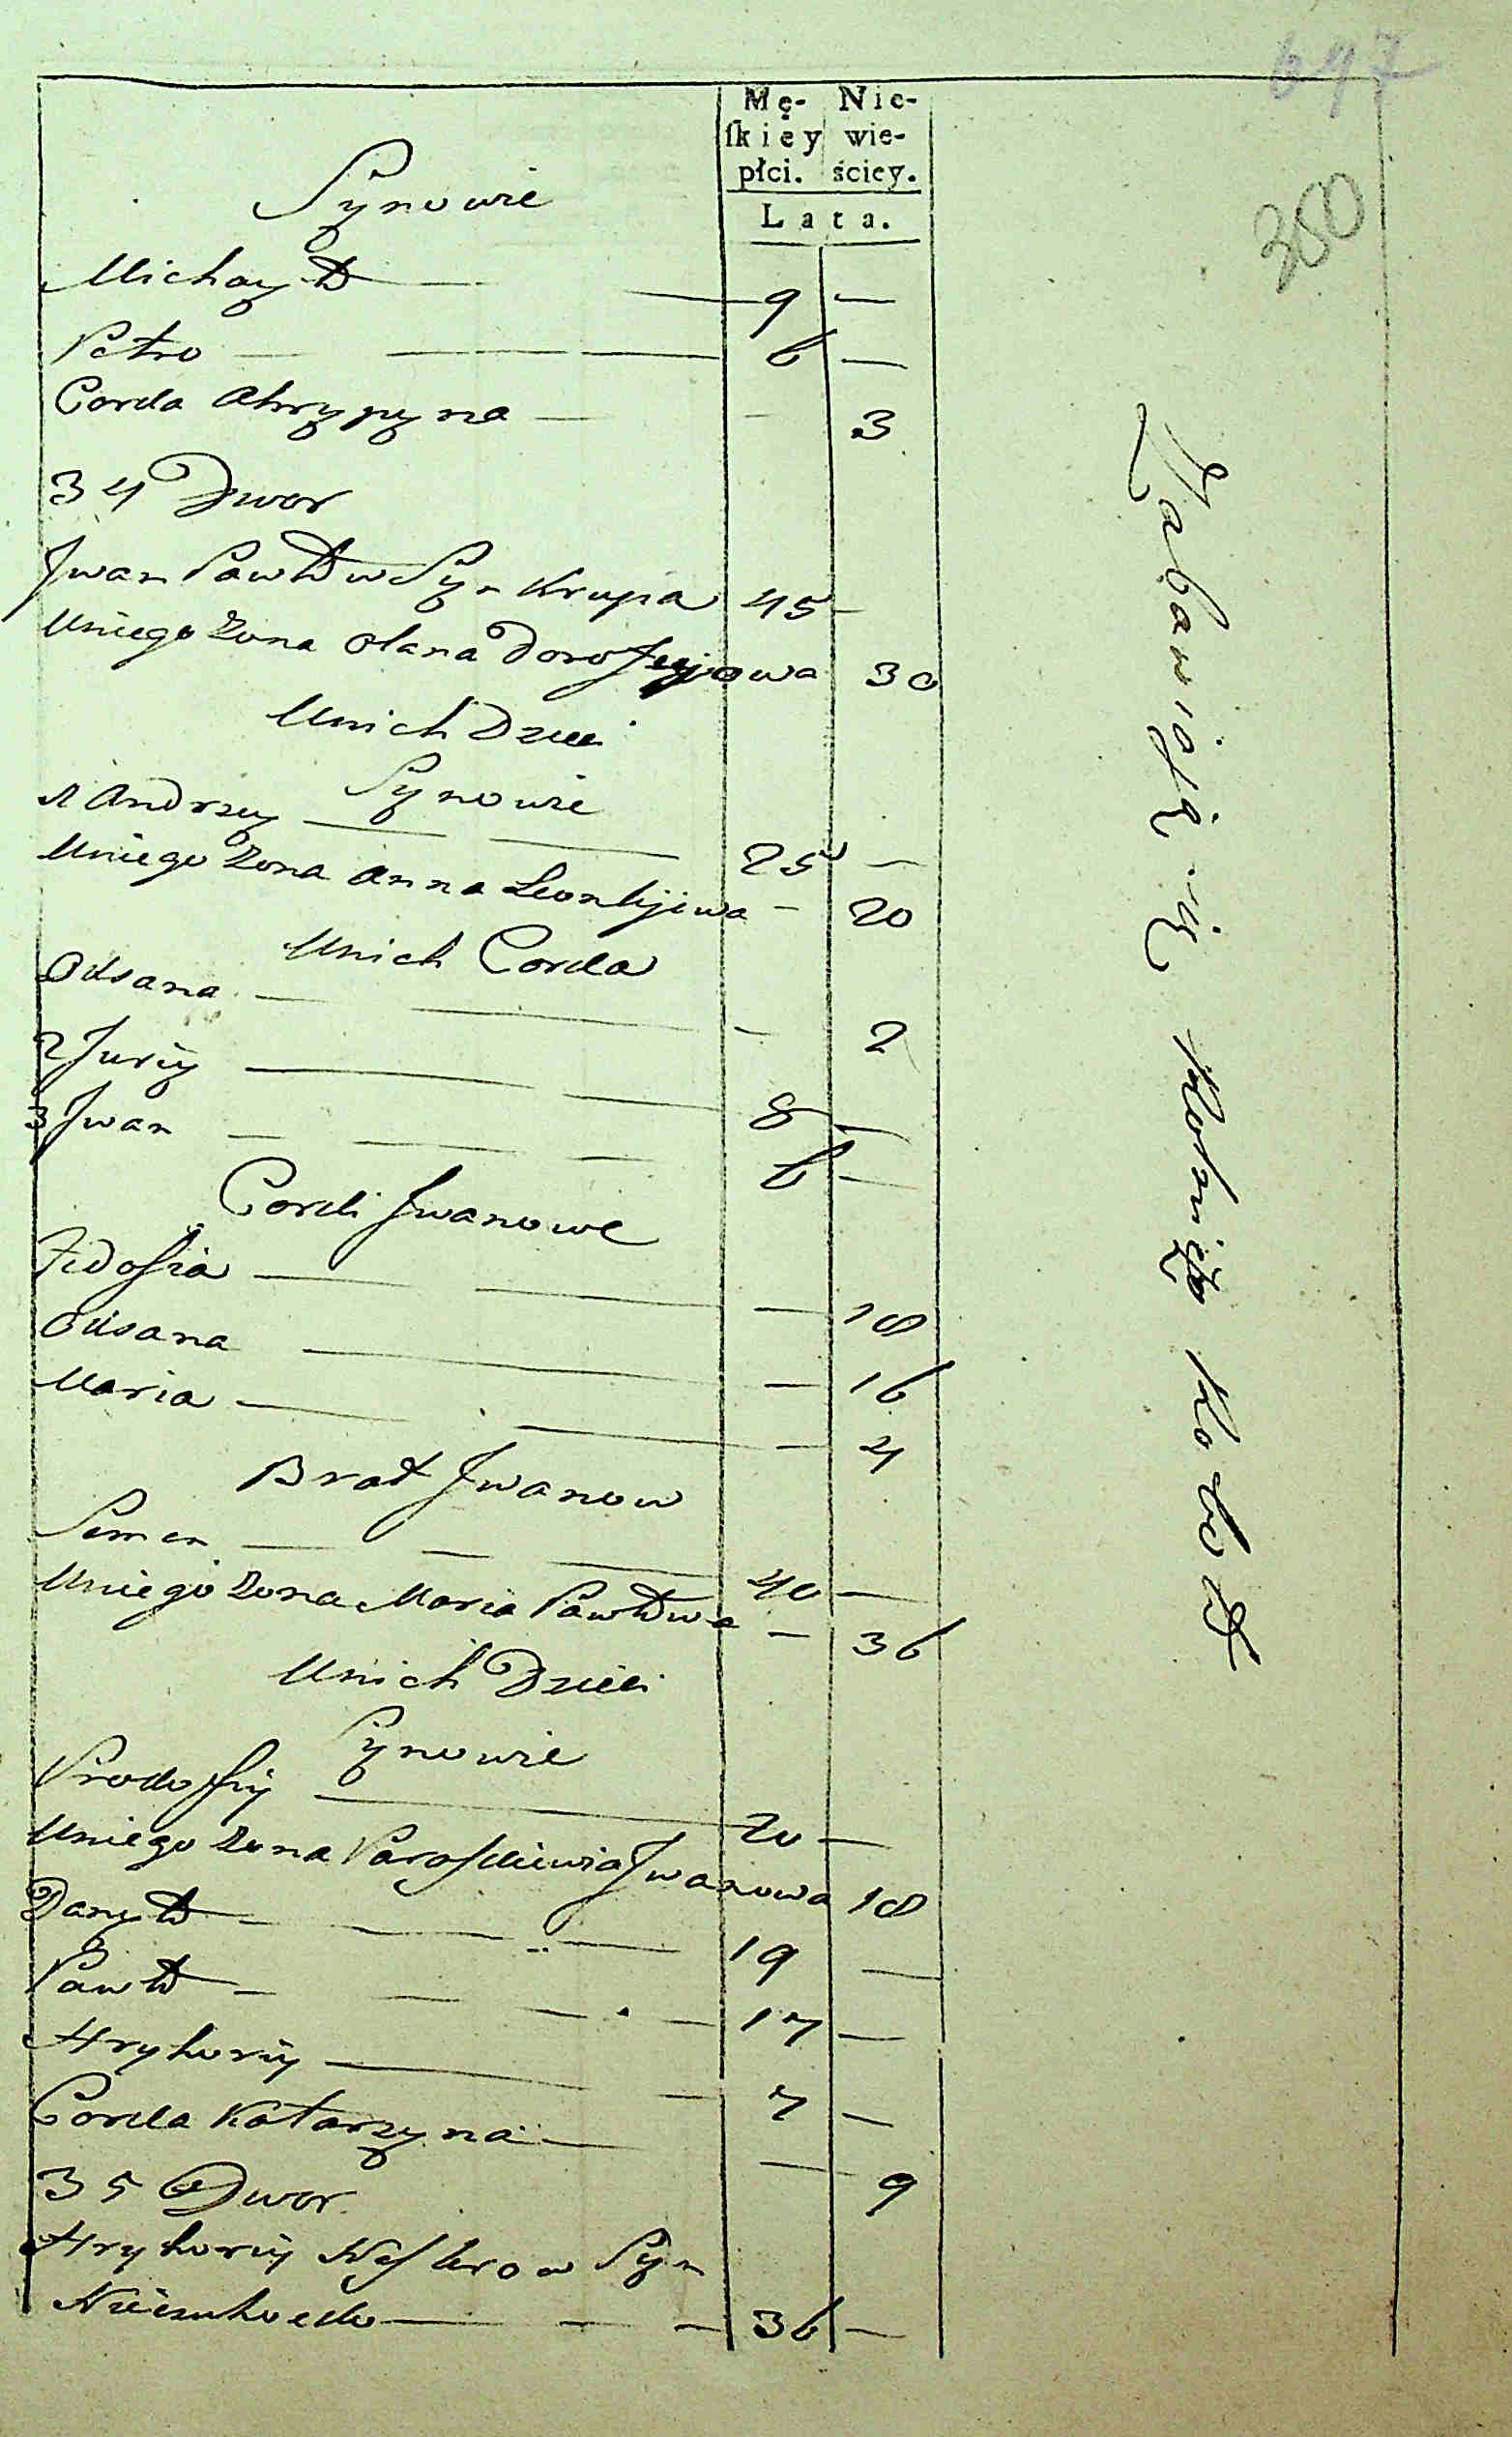 697
350
Mę- Nie-
ſkiey wie-
płci. ściey.
Lata.
Synowie
Michayło — — 9 —
Petro — — — 6 —
Corka Ahrypyna — — 3
34 Dwor
Jwan Pawłow Syn Krupa 45 —
Uniego Zona Olana Dorofiejowa 30
Unich Dzieci
Synowie
1 Andrzey — — 25 —
Uniego Zona Anna Leontijowa — 20
Unich Corka
Oksana — — — 2
2 Juriy — — 8 —
3 Jwan — — — 6 —
Corki Jwanowe
Fedosia — — — 18
Oksana — — — 16
Maria — — — 4
Brat Jwanow
Semen — — — 40 —
Uniego Zona Maria Pawłowa — 36
Unich Dzieci
Synowie
Prokofiy — 20 —
Uniego Zona Paraskiewia Jwanowa 18
Danyło — — — 19 —
Pawło — — — — 17 —
Hryhoriy — — 7 —
Corka Katarzyna — — 9
35 Dwor
Hryhoriy Nesterow Syn
— — — 36 —
Zabawiaią się Rolnictwem